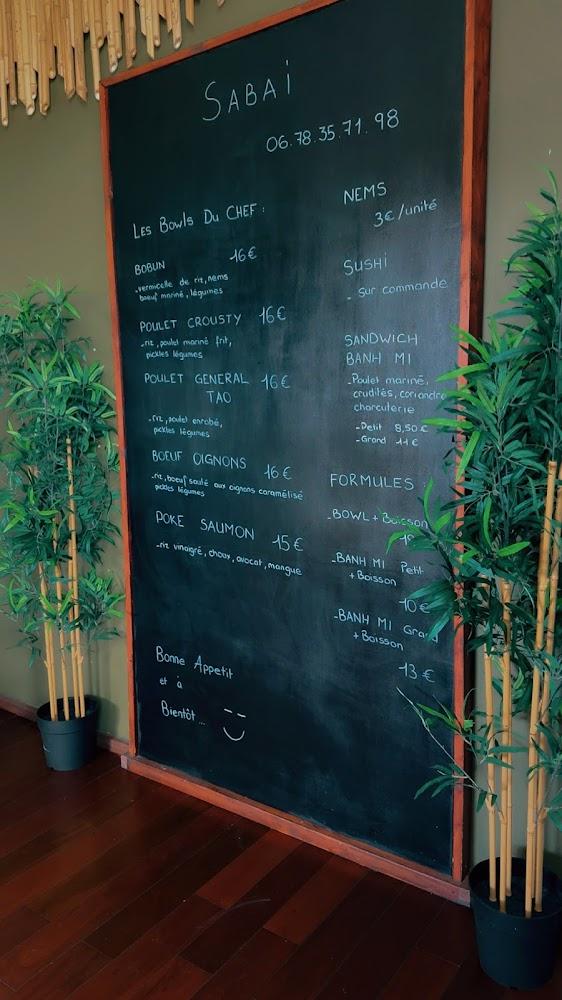 SABAI
06.78.35.71.98
LES BOWLS DU CHEF :
BOBUN 16€
-vermicelle de riz, nems
boeuf mariné, légumes
POULET CROUSTY 16€
-riz, poulet mariné frit,
pickles légumes
POULET GENERAL 16€
TAO
-riz, poulet enrobé,
pickles légumes
BOEUF OIGNONS 16€
-riz, boeuf sauté aux oignons caramélisé
pickles légumes
POKE SAUMON 15€
-riz vinaigré, choux, avocat, mangue
Bonne Appetit
et à
Bientôt...
NEMS
3€/unité
SUSHI
- sur commande
SANDWICH
BANH MI
-Poulet mariné,
crudités, coriandre
charcuterie
-Petit 8,50€
-Grand 11€
FORMULES :
-BOWL + Boisson
-BANH MI Petit
+Boisson
10€
-BANH MI Grand
+Boisson
13€